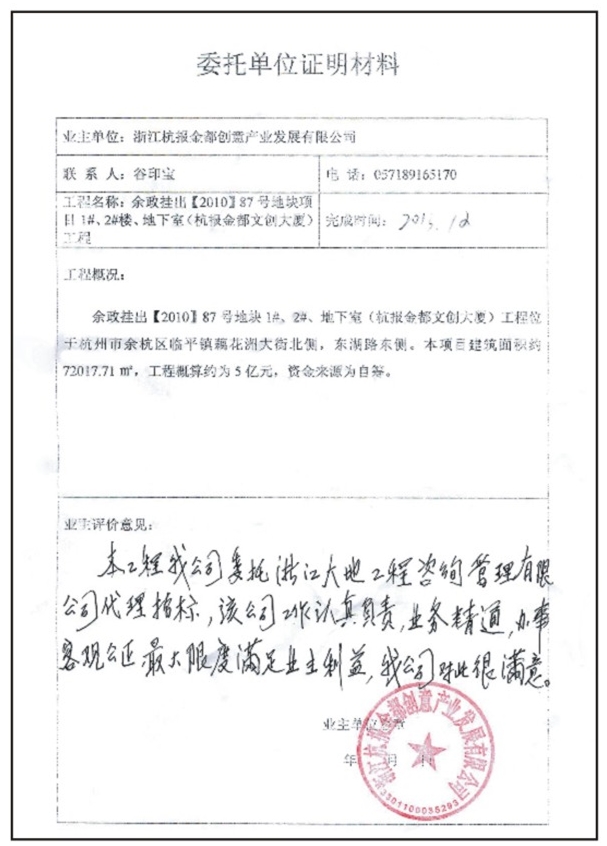 委托单位证明材料
业主单位：浙江杭报金都创意产业发展有限公司
联 系 人：谷印宝
电 话：057189165170
工程名称：余政挂出【2010】87 号地块项
目 1#、2#楼、地下室（杭报金都文创大厦）
工程
完成时间：2013.12
工程概况：
余政挂出【2010】87 号地块 1#，2#、地下室（杭报金都文创大厦）工程位
于杭州市余杭区临平镇藕花洲大街北侧，东湖路东侧。本项目建筑面积约
72017.71 ㎡，工程概算约为 5 亿元，资金来源为自筹。
业主评价意见：
本工程我公司委托浙江大地工程咨询管理有限
公司代理招标，该公司工作认真负责，业务精通，办事
客观公正最大限度满足业主利益，我公司对此很满意。
业主单位签章
年 月 日
浙江杭报金都创意产业发展有限公司
3301100085293